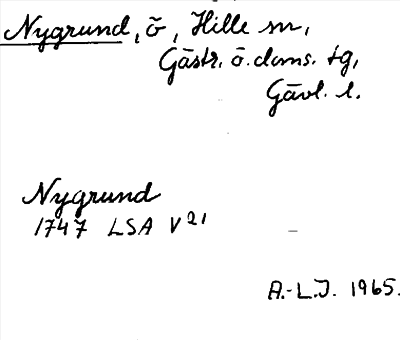 Nygrund, ö, Hille sn,
Gästr. ö. doms. tg,
Gävl. l.
Nygrund
1747 LSA V 21
A.-L.J. 1965.